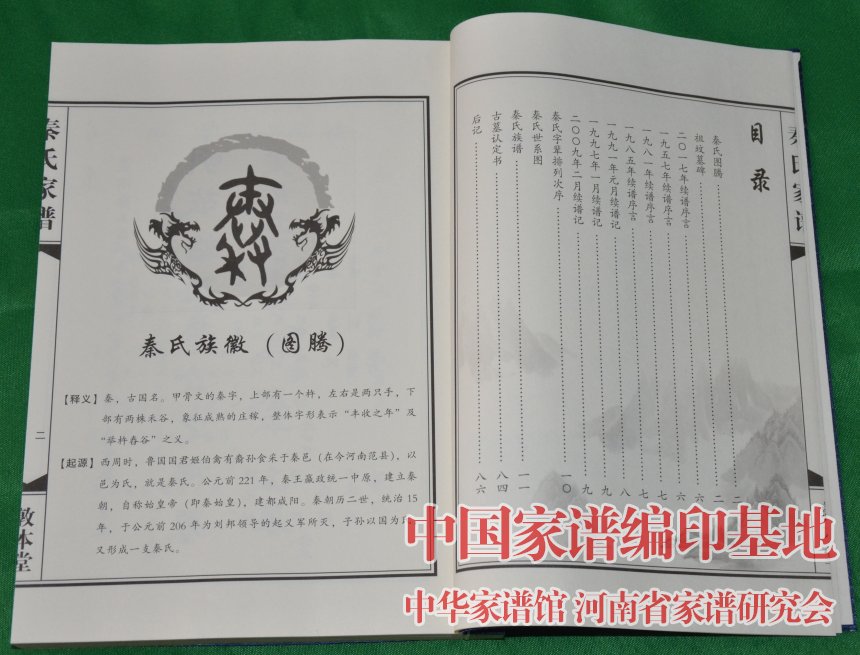 秦氏家谱
二
敦本堂
秦氏族徽（图腾）
【释义】秦，古国名。甲骨文的秦字，上部有一个杵，左右是两只手，下
部有两株禾谷，象征成熟的庄稼，整体字形表示“丰收之年”及
“举杵舂谷”之义。
【起源】西周时，鲁国国君姬伯禽有裔孙食采于秦邑（在今河南范县），以
邑为氏，就是秦氏。公元前221年，秦王嬴政统一中原，建立秦
朝，自称始皇帝（即秦始皇），建都咸阳。秦朝历二世，统治15
年，于公元前206年为刘邦领导的起义军所灭，子孙以国为氏
又形成一支秦氏。
秦氏家谱
目录
秦氏图腾……二
祖坟墓碑……二
二〇一七年续谱序言……六
一九五七年续谱序言……六
一九八一年续谱序言……七
一九八五年续谱序言……七
一九九一年元月续谱记……八
一九九七年一月续谱记……九
二〇〇九年二月续谱记……九
秦氏字辈排列次序……一〇
秦氏世系图
秦氏族谱……一一
古墓认定书……八四
后记……八六
中国家谱编印基地
中华家谱馆 河南省家谱研究会